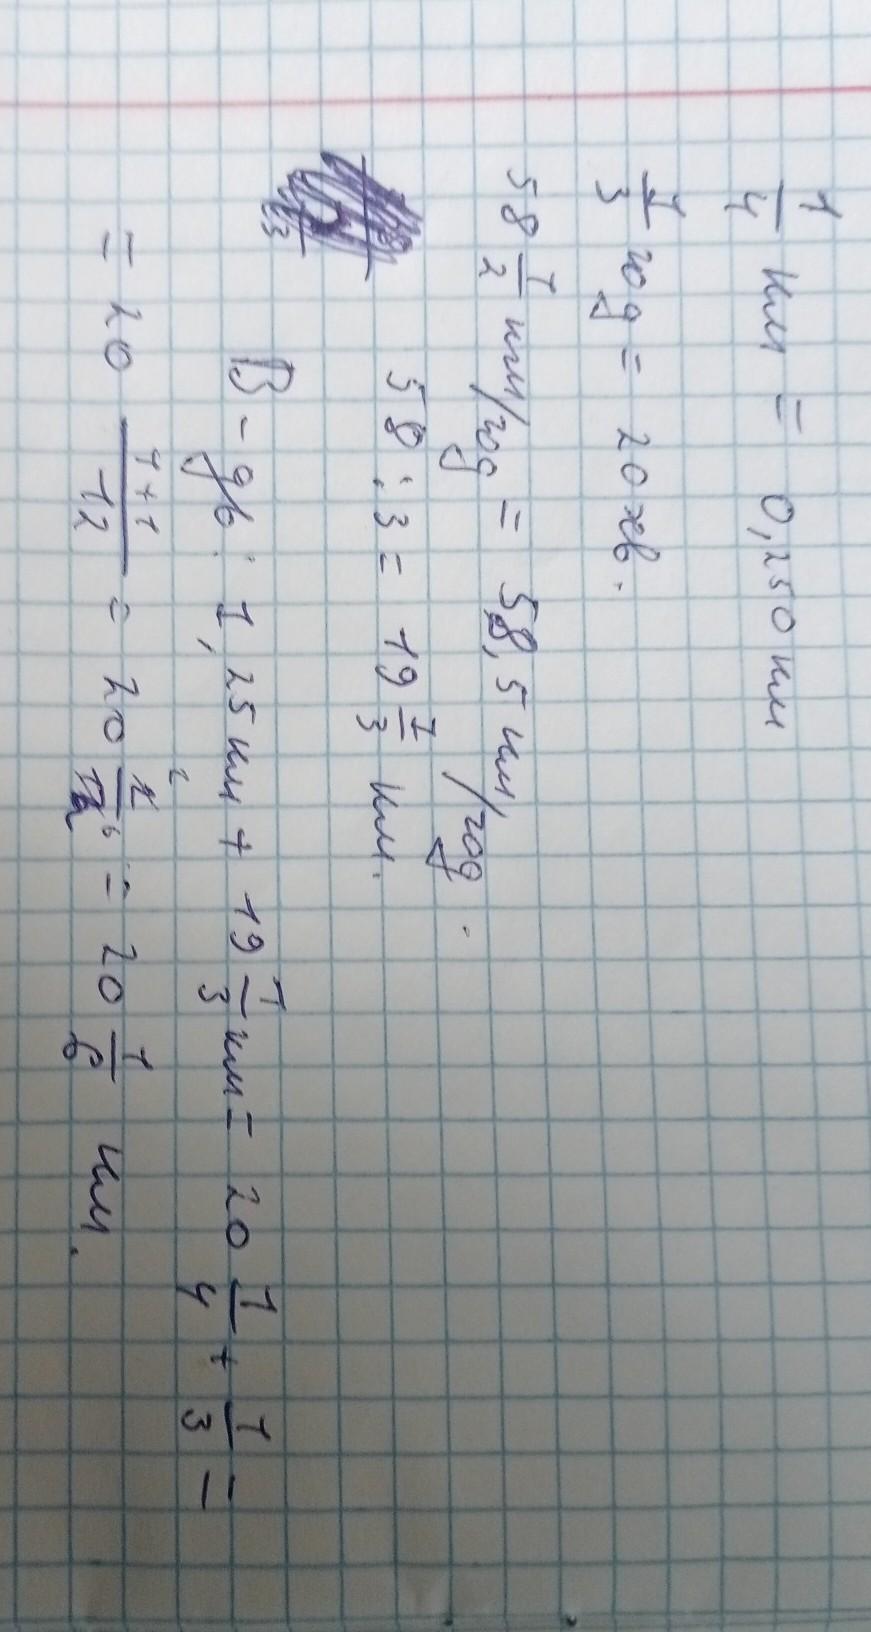 1/4 км = 0,250 км
1/3 год = 20 хв.
58 1/2 км/год = 58,5 км/год.
58 : 3 = 19 1/3 км.
В-дь: 1,25 км + 19 1/3 км = 20 1/4 + 1/3 =
= 20 1+1/12 = 20 2/12 = 20 1/6 км.